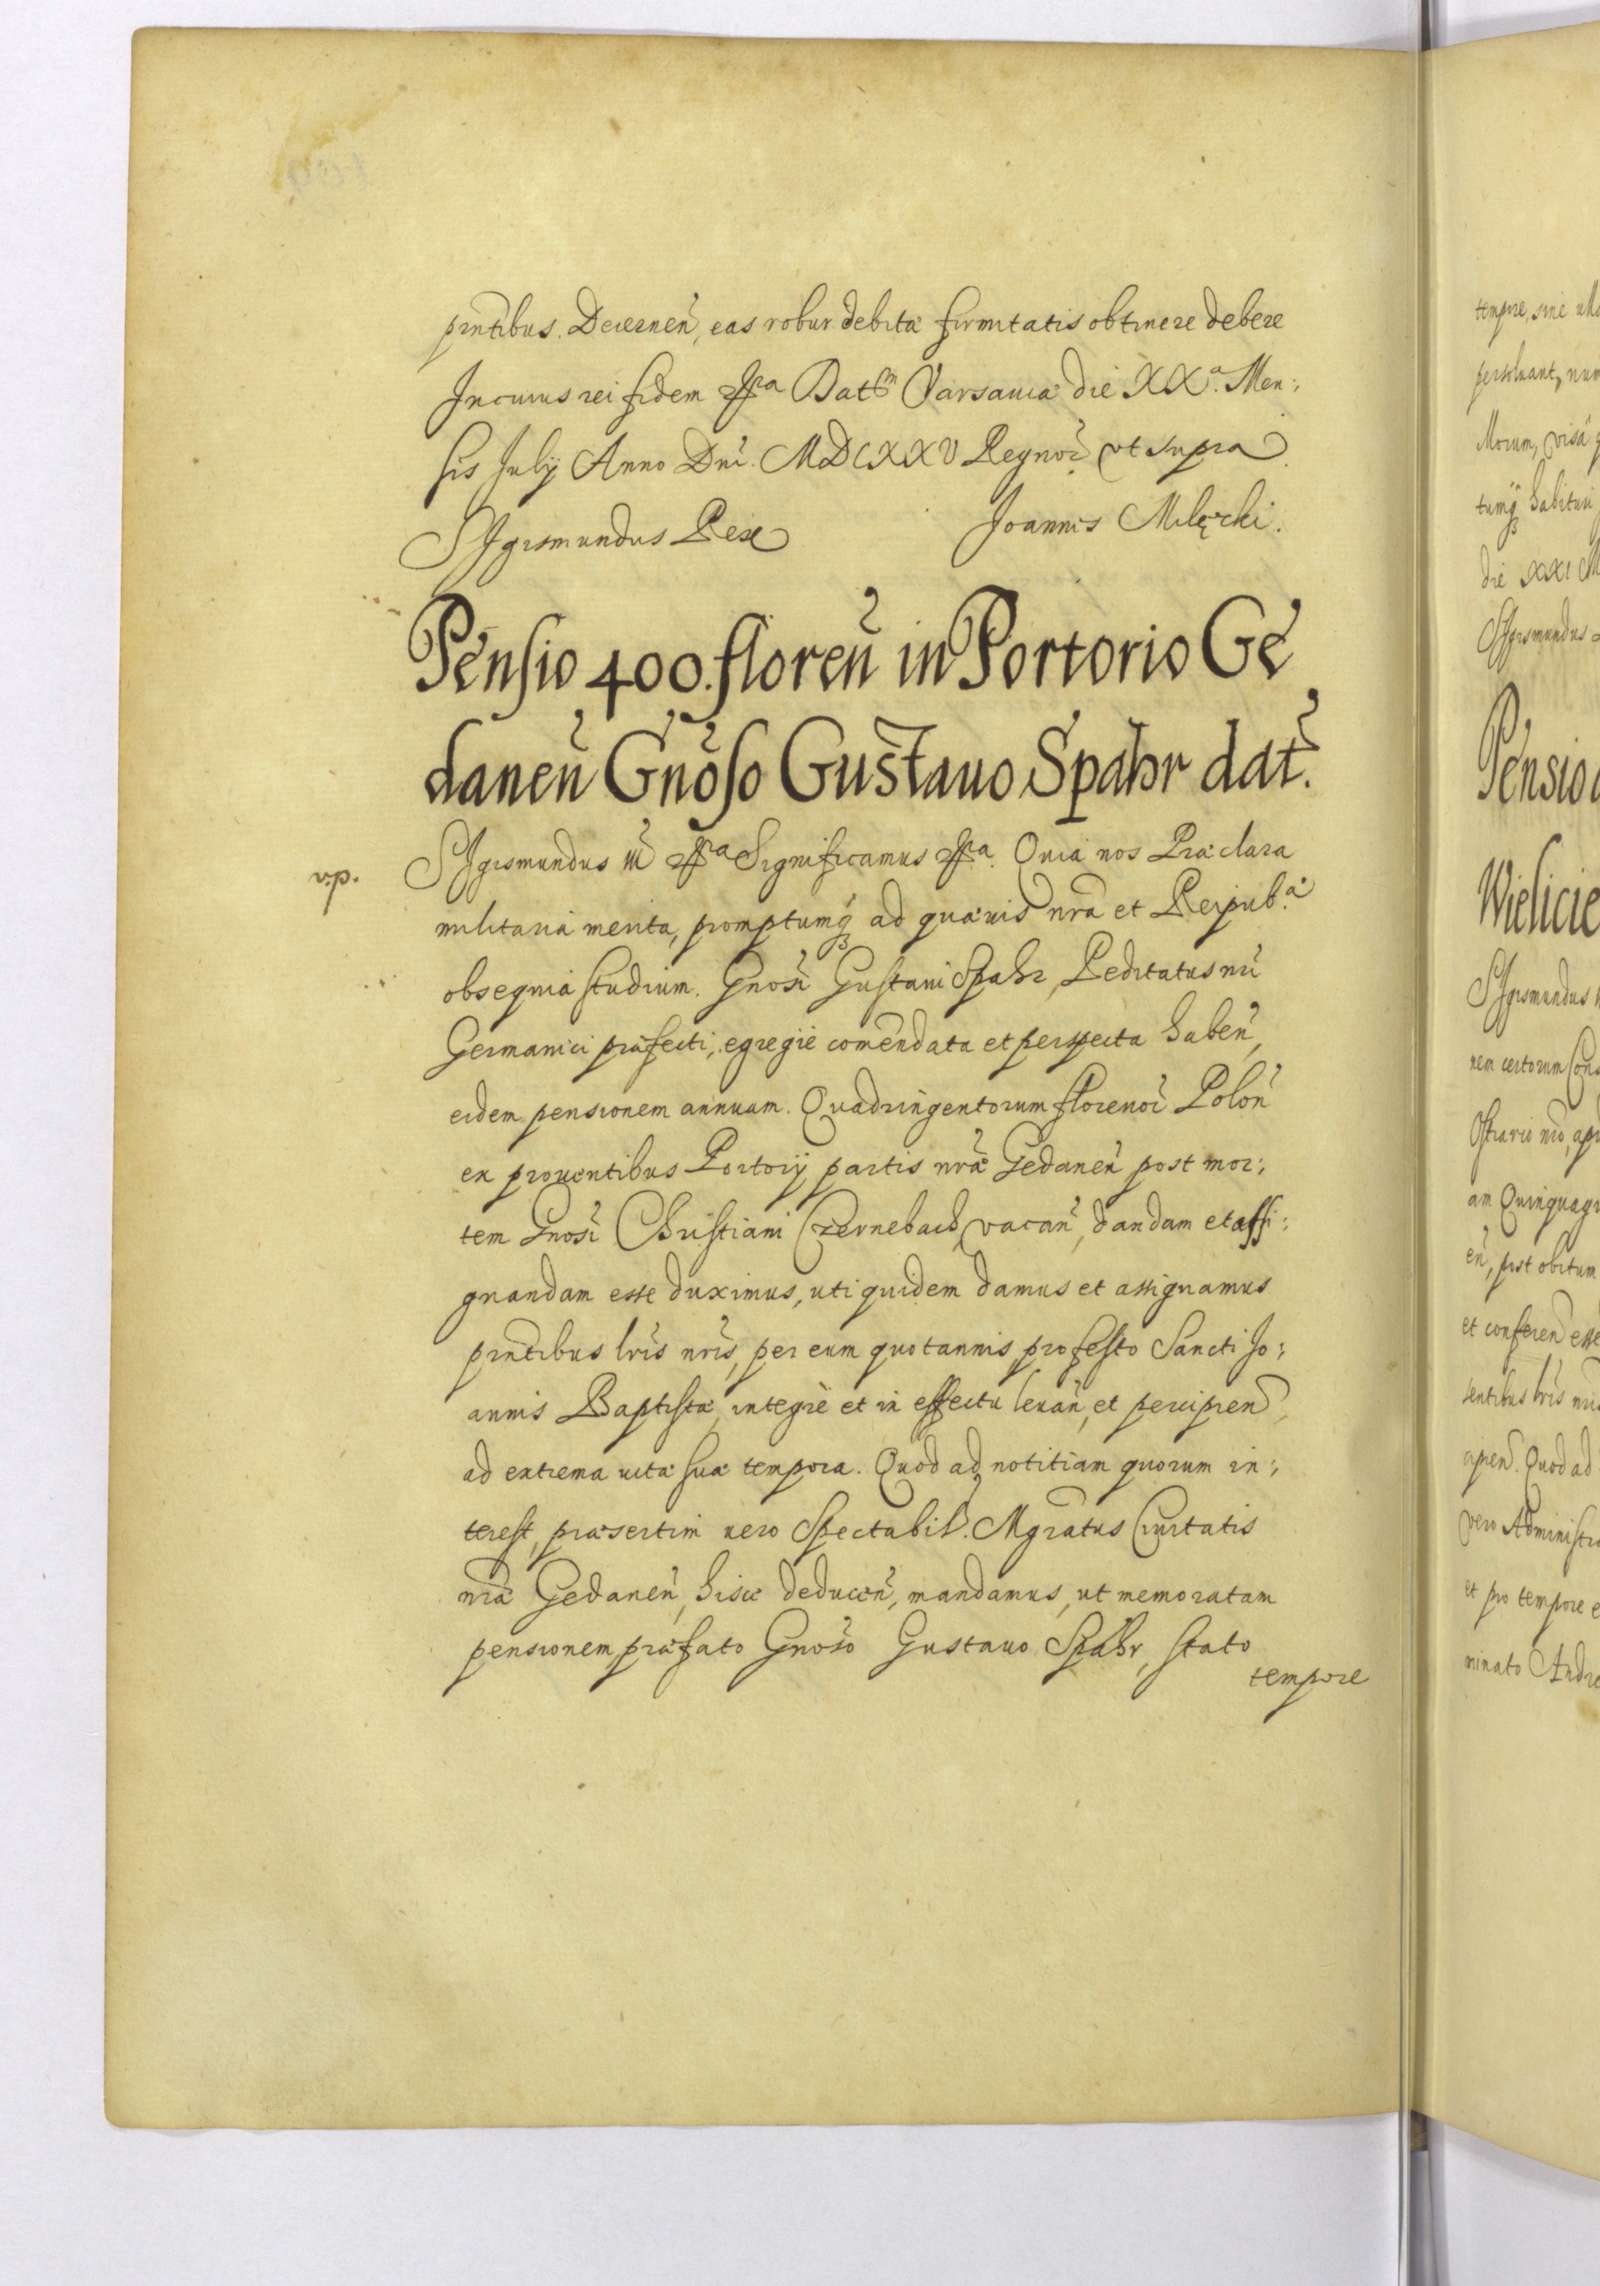 pñtibus. Decernen̄, eas robur debitæ firmitatis obtinere debere
In cuius rei fidem &ra Datm Varsaviæ die XXa. Men:
sis July Anno Dni. MDCXXV Regnor̄ ut supra
SIgismundus Rex
Joannes Milęcki.
Pensio 400. floren̄ in Portorio Ge
danen̄ Gnoso Gustauo Spahr dat̄.
v.p.
SIgismundus III &ra Significamus &ra. Quia nos Præclara
militaria merita, promptumq; ad quævis nrā et Reipub.æ
obsequia studium. Gnosi Gustaui Spahr, Peditatus nri
Germanici præfecti, egregiè com̄endata et perspecta haben̄,
eidem pensionem annuam. Quadringentorum florenor̄ Polon̄
ex prouentibus Portorij partis nræ Gedanen̄ post mor:
tem Gnosi Christiani Czernebach, vacan̄, dandam et assi:
gnandam esse duximus, uti quidem damus et assignamus
pñtibus lris nris, per eum quotannis, pro festo Sancti Jo:
annis Baptistæ, integrè et in effectu leuan̄, et percipien̄,
ad extrema uitæ suæ tempora. Quod ad notitiam quorum in:
terest, præsertim uero Spectabil. Mgratus Ciuitatis
nræ Gedanen̄, hisce deducen̄, mandamus, ut memoratam
pensionem, præfato Gnoso Gustauo Spahr, stato
tempore
tempore, sine
persoluant,
Morum,
tumq; habituri
die XXI
SIgismundus
Pensio
Wielicie
SIgismundus
nem certorum
Ostiario nro,
am Quinquag
en̄, post obitum
et conferen̄ esse
sentibus lris
Quod ad
vero Administra
et pro tempore
minato Andre